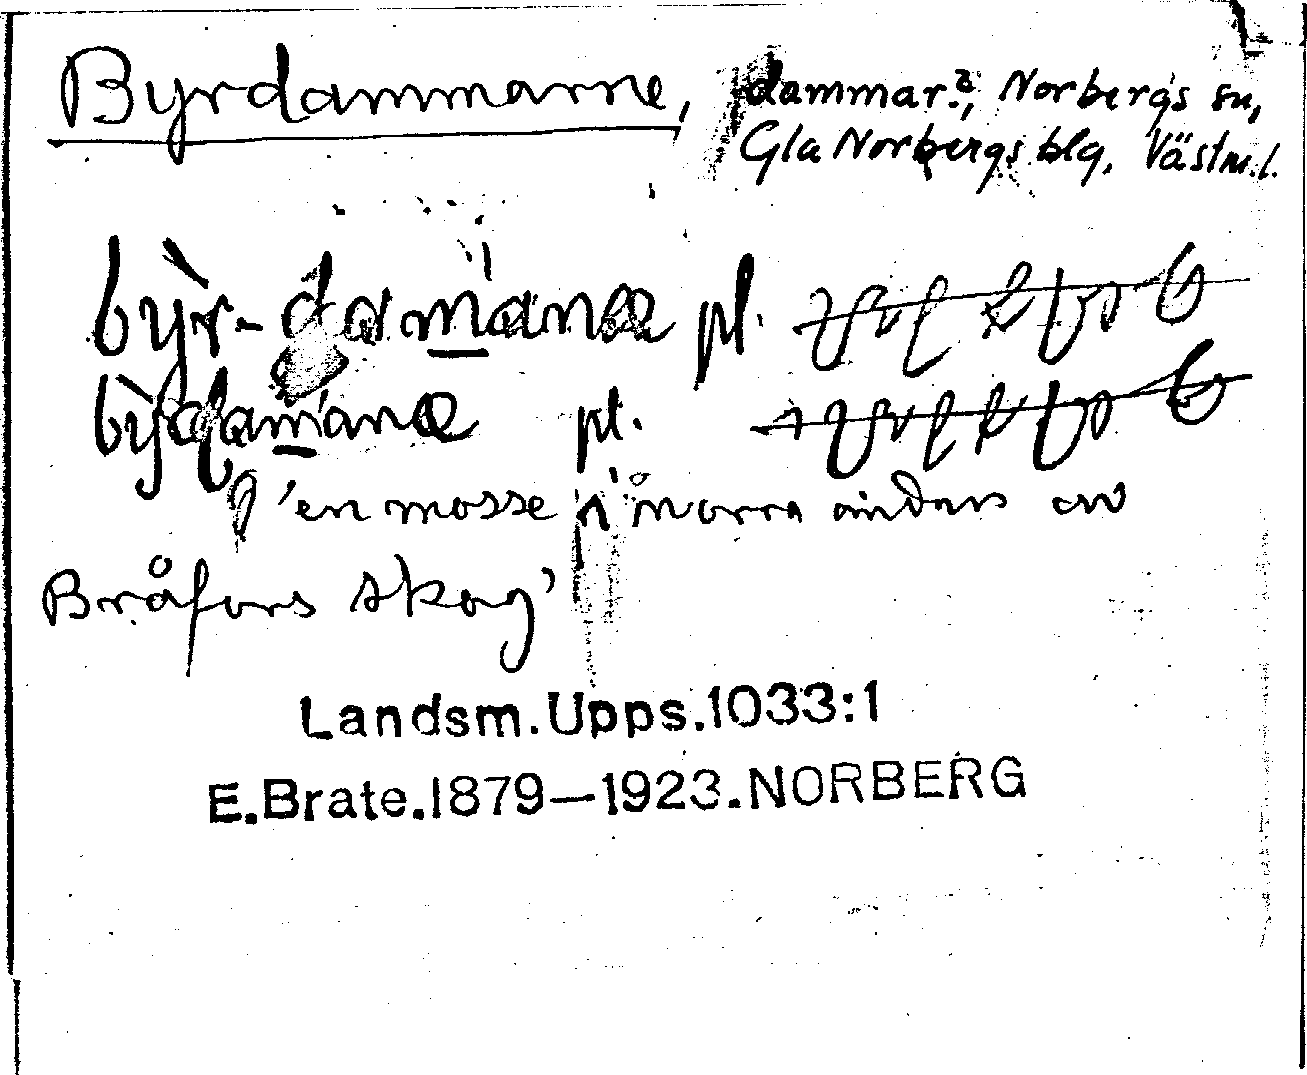 Byrdammarne, dammar.?, Norbergs sn,
Gla Norbergs blg, Västm.l.
by̓r-damana pl.
by̓rdamana pl.
'en mosse i norra ändan av
Bråfors skog'
Landsm.Upps.1033:1
E.Brate.1879—1923.NORBERG